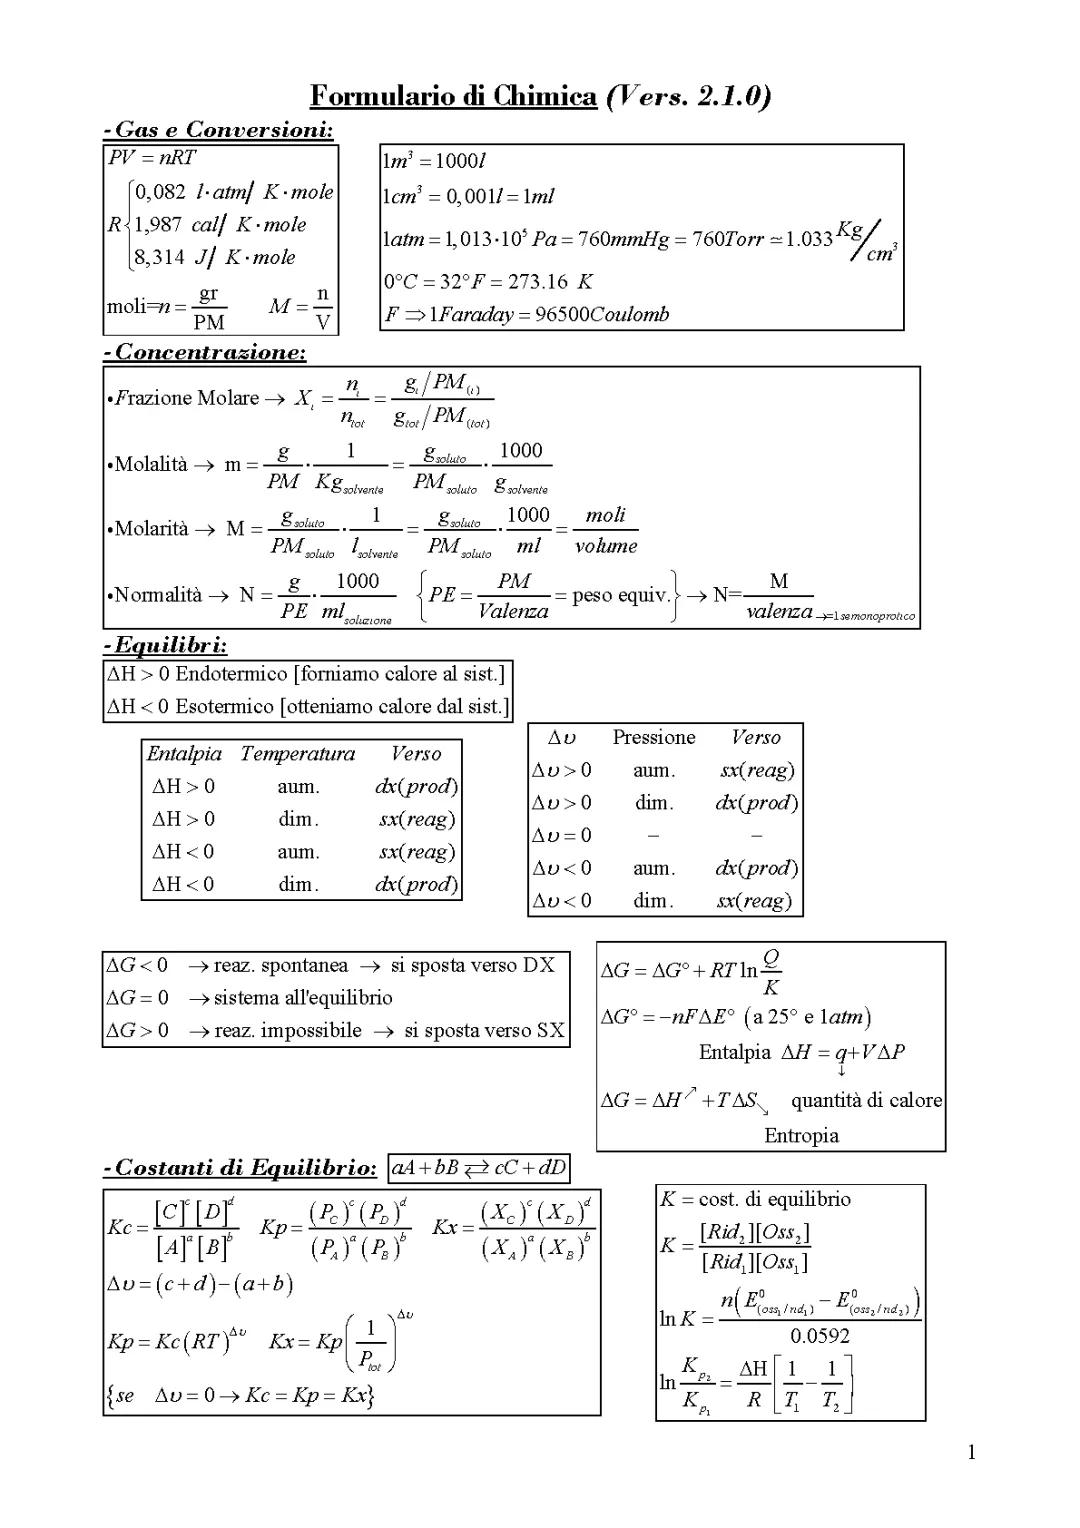 Formulario di Chimica (Vers. 2.1.0)
-Gas e Conversioni:
PV = nRT
R { 0,082 l·atm/ K·mole
1,987 cal/ K·mole
8,314 J/ K·mole
moli=n = gr/PM M = n/V
1m³ = 1000l
1cm³ = 0,001l = 1ml
1atm = 1,013·10⁵ Pa = 760mmHg = 760Torr ≃ 1.033 Kg/cm³
0°C = 32°F = 273.16 K
F ⇒ 1Faraday = 96500Coulomb
-Concentrazione:
•Frazione Molare → X_i = n_i/n_tot = (g_i/PM_(i))/(g_tot/PM_(tot))
•Molalità → m = g/PM · 1/Kg_solvente = g_soluto/PM_soluto · 1000/g_solvente
•Molarità → M = g_soluto/PM_soluto · 1/l_solvente = g_soluto/PM_soluto · 1000/ml = moli/volume
•Normalità → N = g/PE · 1000/ml_soluzione { PE = PM/Valenza = peso equiv. } → N= M/valenza →=1 se monoprotico
-Equilibri:
ΔH > 0 Endotermico [forniamo calore al sist.]
ΔH < 0 Esotermico [otteniamo calore dal sist.]
Entalpia Temperatura Verso
ΔH > 0 aum. dx(prod)
ΔH > 0 dim. sx(reag)
ΔH < 0 aum. sx(reag)
ΔH < 0 dim. dx(prod)
Δυ Pressione Verso
Δυ > 0 aum. sx(reag)
Δυ > 0 dim. dx(prod)
Δυ = 0 – –
Δυ < 0 aum. dx(prod)
Δυ < 0 dim. sx(reag)
ΔG < 0 → reaz. spontanea → si sposta verso DX
ΔG = 0 → sistema all'equilibrio
ΔG > 0 → reaz. impossibile → si sposta verso SX
ΔG = ΔG° + RT ln Q/K
ΔG° = −nFΔE° (a 25° e 1atm)
Entalpia ΔH = q+VΔP
↓
ΔG = ΔH↗ + TΔS↘ quantità di calore
Entropia
-Costanti di Equilibrio: aA + bB ⇄ cC + dD
Kc = [C]^c [D]^d / [A]^a [B]^b Kp = (P_C)^c (P_D)^d / (P_A)^a (P_B)^b Kx = (X_C)^c (X_D)^d / (X_A)^a (X_B)^b
Δυ = (c+d)−(a+b)
Kp = Kc(RT)^Δυ Kx = Kp(1/P_tot)^Δυ
{se Δυ = 0 → Kc = Kp = Kx}
K = cost. di equilibrio
K = [Rid₂][Oss₂] / [Rid₁][Oss₁]
ln K = n(E⁰_(oss₁/rid₁) − E⁰_(oss₂/rid₂)) / 0.0592
ln K_p₂/K_p₁ = ΔH/R [1/T₁ − 1/T₂]
1